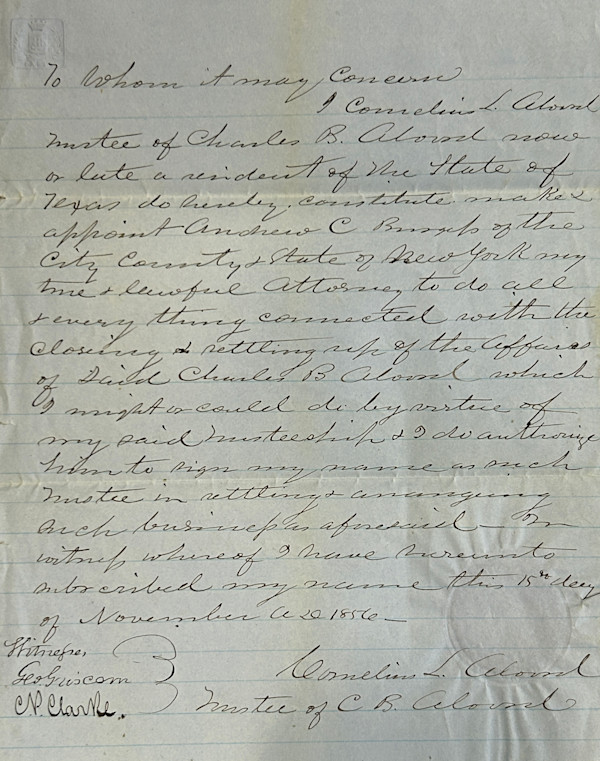 To Whom it may Concern
I Cornelius L. Alvord
Trustee of Charles B. Alvord now
or late a resident of the State of
Texas do hereby constitute make &
appoint Andrew C Burgess of the
City County & State of New York my
true & lawful Attorney to do all
& every thing connected with the
closing & settling up of the Affairs
of Said Charles B Alvord which
I might or could do by virtue of
my said trusteeship & I do authorize
him to sign my name as such
Trustee in settling & arranging
such business as aforesaid — In
witness whereof I have hereunto
subscribed my name this 15th day
of November A D 1856 —
Witnesses
Geo Griscom
C.N. Clarke.
Cornelius L. Alvord
Trustee of C B. Alvord